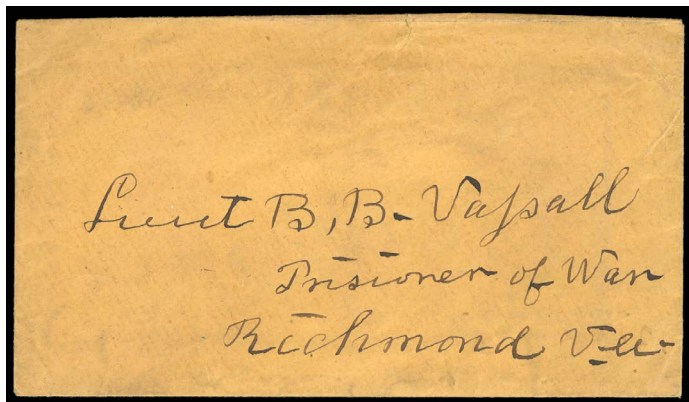 Lieut B, B. Vassall
Prisioner of War
Richmond Va